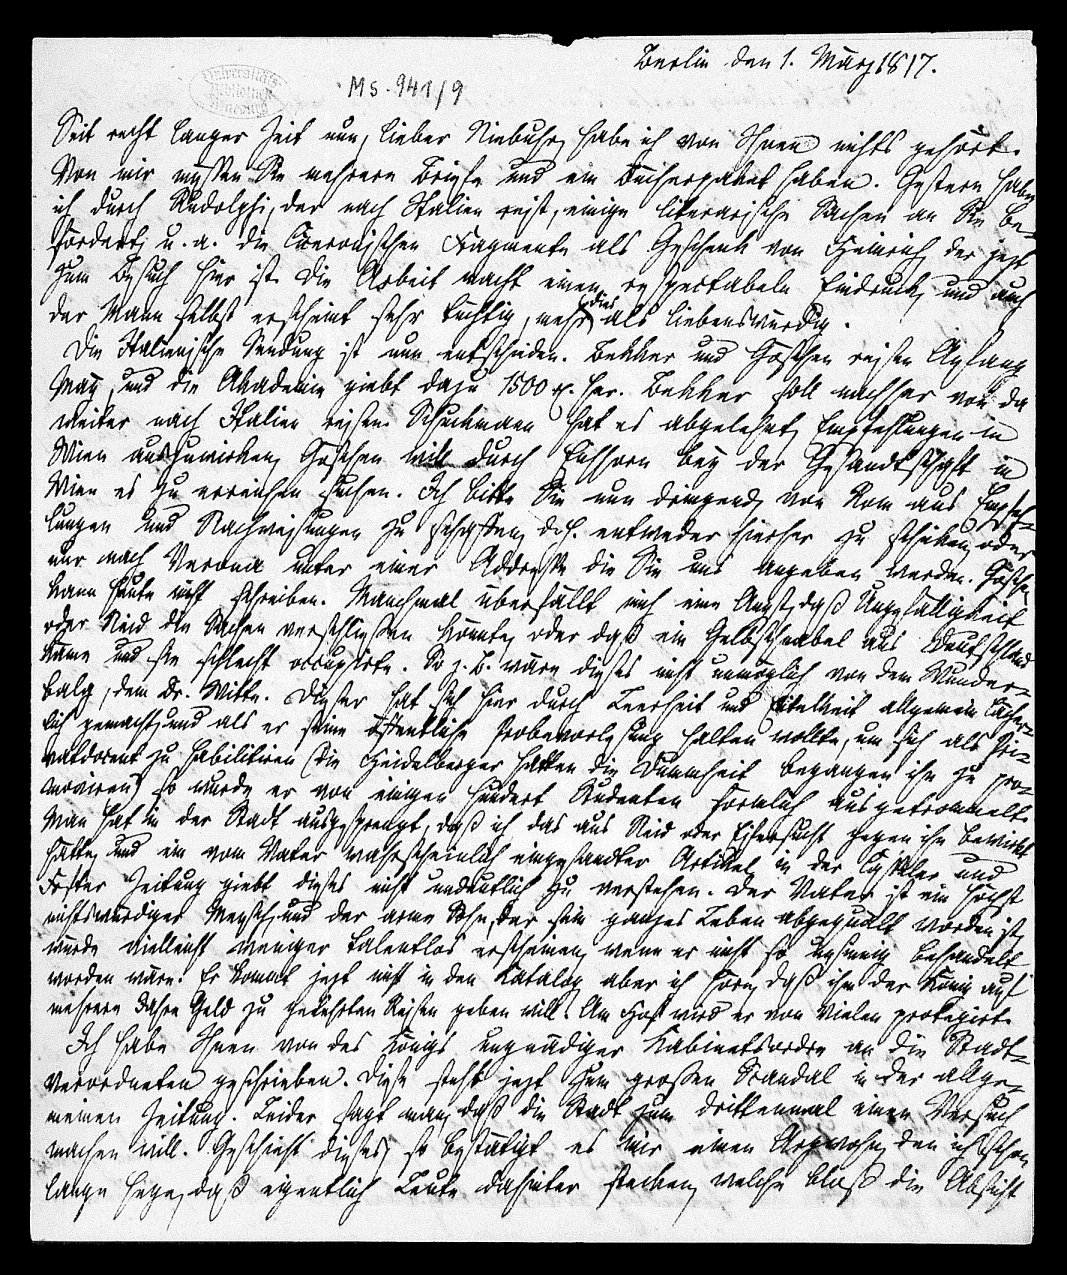 Berlin den 1. März 1817.
Universitäts Bibliothek Marburg
Ms. 941/9
Seit recht langer Zeit nun, lieber Niebuhr, habe ich von Ihnen nichts gehört.
Von mir müssen Sie mehrere Briefe und ein Bücherpaket haben. Gestern habe
ich durch Rudolphi, der nach Italien reist, einige literarische Sachen an Sie be-
fördert, u. a. die Ciceronischen Fragmente als Geschenk von Heinrich der jezt
zum Besuch hier ist. Die Arbeit macht einen respectabeln Eindruck, und auch
der Mann selbst erscheint sehr tüchtig, mehr dies als liebenswürdig.
Die Italienische Sendung ist nun entschieden. Bekker und Göschen reisen Anfang
May, und die Akademie giebt dazu 1500 r. her. Bekker soll nachher von da
weiter nach Italien reisen. Schuckmann hat es abgelehnt, Empfehlungen in
Wien auszuwirken, Göschen will durch Eichhorn bey der Gesandtschaft in
Wien es zu erreichen suchen. Ich bitte Sie nun dringend, von Rom aus Empfeh-
lungen und Nachweisungen zu schaffen, d.h. entweder hierher zu schicken, oder
nur nach Verona unter einer Addresse die Sie uns angeben werden. Göschen
kann heute nicht schreiben. Manchmal überfällt mich eine Angst, daß Ungefälligkeit
oder Neid die Sachen verschließen könnte, oder daß ein Gelbschnabel aus Deutschland
käme und sie schlecht occupirte. So z. B. wäre dieses nicht unmöglich von dem Wunder-
balg, dem Dr. Witte. Dieser hat sich hier durch Leerheit und Eitelkeit allgemein lächer-
lich gemacht, und als er seine öffentliche Probevorlesung halten wollte, um sich als Pri-
vatdocent zu habilitiren (die Heidelberger hatten die Dummheit begangen ihn zu pro-
moviren) so wurde er von einigen hundert Studenten förmlich ausgetrommelt.
Man hat in der Stadt ausgesprengt, daß ich das aus Neid oder Eifersucht gegen ihn bewirkt
hätte, und ein vom Vater wahrscheinlich eingesandter Artikel in der Casseler und
Frkfter Zeitung giebt dieses nicht undeutlich zu verstehen. Der Vater ist ein höchst
nichtswürdiger Mensch, und der arme Sohn, der sein ganzes Leben abgequält worden ist,
würde vielleicht weniger talentlos erscheinen, wenn er nicht so unsinnig behandelt
worden wäre. Er kommt jezt nicht in den Katalog aber ich höre, daß ihm der König auf
mehrere Jahre Geld zu gelehrten Reisen geben will. Am Hof wird er von Vielen protegirt.
Ich habe Ihnen von des Königs ungnädiger Kabinetsordre an die Stadt-
verordneten geschrieben. Diese steht jezt zum großen Skandal in der allge-
meinen Zeitung. Leider sagt man, daß die Stadt zum drittenmal einen Versuch
machen will. Geschieht dieses, so bestätigt es mir einen Argwohn, den ich schon
lange hege, daß eigentlich Leute dahinter stecken, welche bloß die Absicht